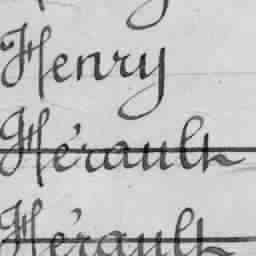 Henry
Hérault
Hérault